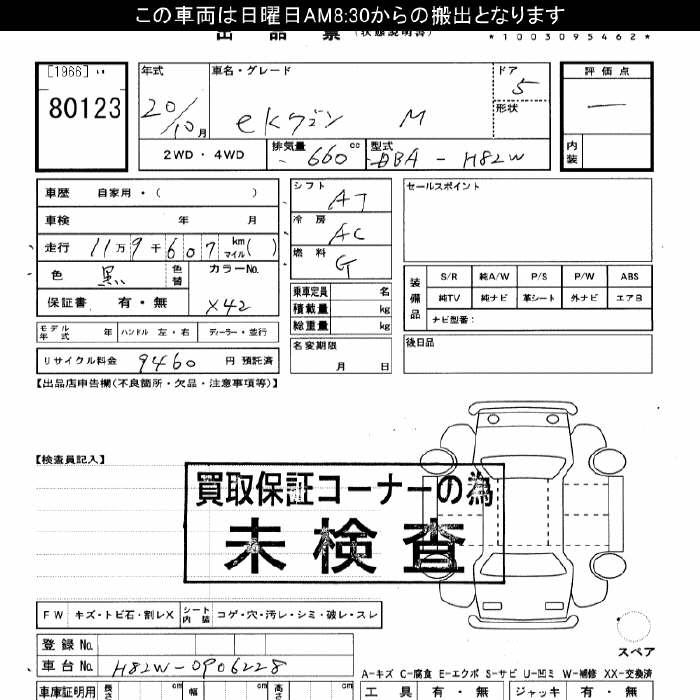 この車両は日曜日AM8:30からの搬出となります
出品票 (状態説明書) *1003095462*
[1966] い
80123
年式 20/10月
車名・グレード ekワゴン M
ドア 5
形状
評価点 —
内装
2WD・4WD
排気量 660 cc
型式 DBA-H82W
車歴 自家用・( )
車検 年 月
走行 11万9千607 km マイル( )
色 黒 色替
カラーNo. X42
保証書 有・無
シフト AT
冷房 AC
燃料 G
セールスポイント
装備品 S/R 純A/W P/S P/W ABS
純TV 純ナビ 革シート 外ナビ エアB
ナビ型番:
乗車定員 名
積載量 kg
総重量 kg
モデル年式 年 ハンドル 左・右 ディーラー・並行
リサイクル料金 9460 円 預託済
名変期限 月 日
後日品
【出品店申告欄(不良箇所・欠品・注意事項等)】
【検査員記入】
買取保証コーナーの為
未検査
FW キズ・トビ石・割レX シート内装 コゲ・穴・汚レ・シミ・破レ・スレ
スペア
登録No.
車台No. H82W-0906228
A-キズ C-腐食 E-エクボ S-サビ U-凹ミ W-補修 XX-交換済
車庫証明用 長さ cm 幅 cm 高さ cm
工具 有・無 ジャッキ 有・無